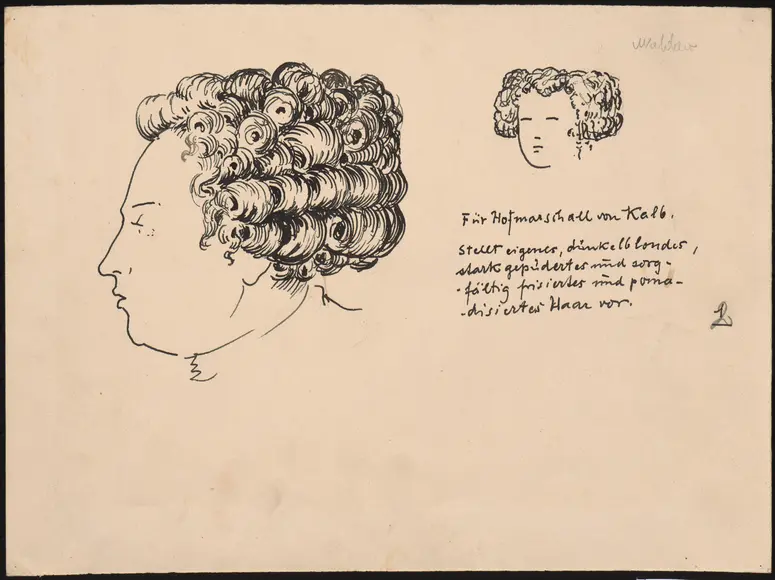 Für Hofmarschall von Kalb.
Stellt eigenes, dunkelblondes,
stark gepudertes und sorg-
-fältig frisiertes und poma-
-disiertes Haar vor.
2